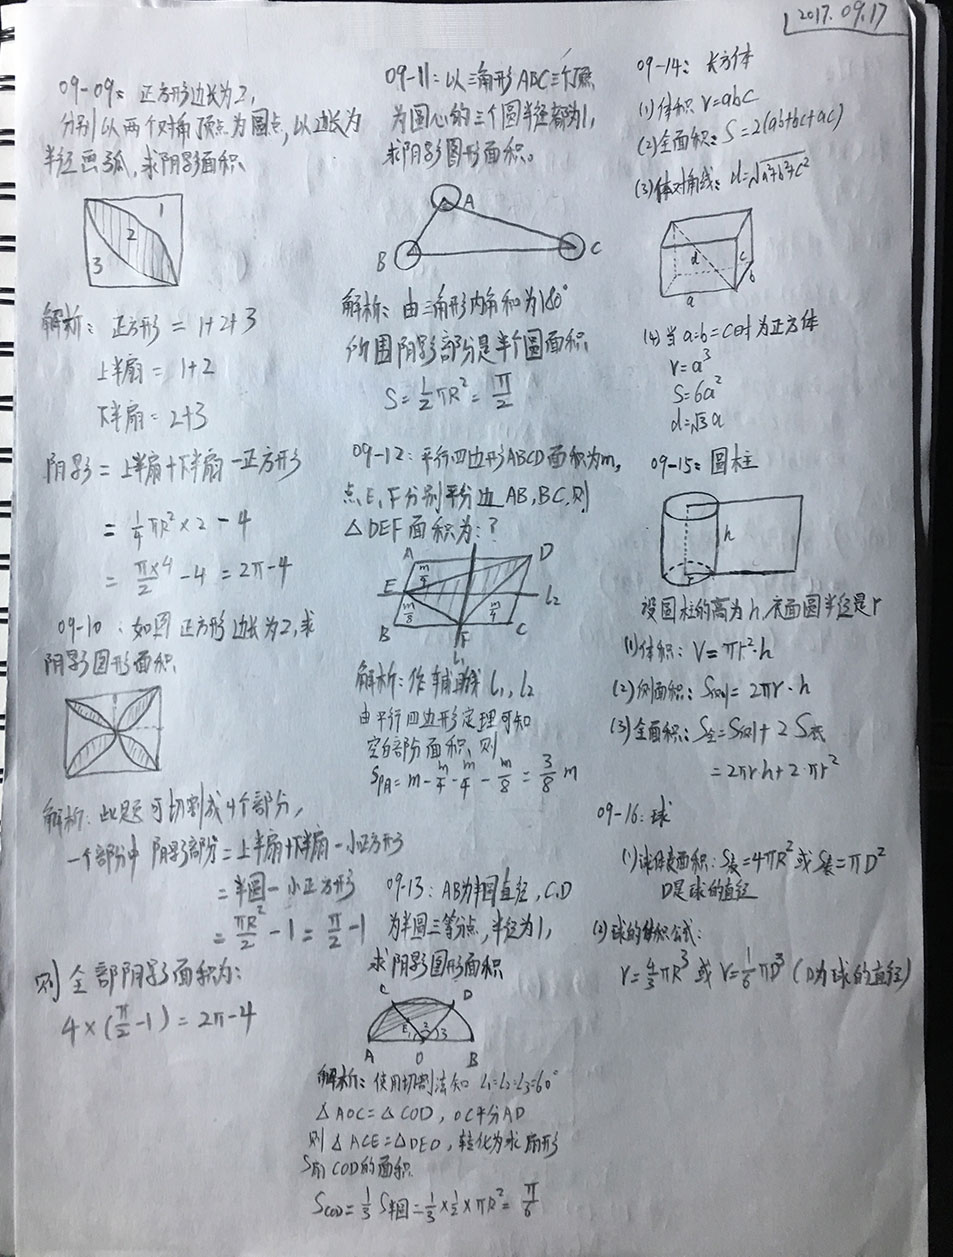 2017.09.17
09-09: 正方形边长为2,
分别以两个对角顶点为圆点,以边长为
半径画弧,求阴影面积.
1
2
3
解析: 正方形 = 1+2+3
上半扇 = 1+2
下半扇 = 2+3
阴影 = 上半扇+下半扇-正方形
= 1/4 πR² × 2 - 4
= π×4/2 - 4 = 2π-4
09-10: 如图 正方形边长为2,求
阴影图形面积.
解析: 此题可切割成4个部分,
一个部分中 阴影部分=上半扇+下半扇-小正方形
= 半圆-小正方形
= πR²/2 - 1 = π/2 - 1
则 全部阴影面积为:
4×(π/2 - 1) = 2π-4
09-11: 以三角形ABC三个顶点
为圆心的三个圆半径都为1,
求阴影图形面积。
A
B
C
解析: 由三角形内角和为180°
所围阴影部分是半个圆面积.
S = 1/2 πR² = π/2
09-12: 平行四边形ABCD面积为m,
点E、F分别平分边AB,BC,则
△DEF面积为:?
A
D
m/4
E
l2
m/8
m/4
B
F
C
l1
解析: 作辅助线 l1, l2
由平行四边形定理可知
空白部分面积,则
S阴 = m - m/4 - m/4 - m/8 = 3/8 m
09-13: AB为半圆直径,C,D
为半圆三等分点,半径为1,
求阴影图形面积
C
D
E
1
2
3
A
O
B
解析: 使用切割法知 ∠1=∠2=∠3=60°
△AOC=△COD, OC平分AD
则△ACE=△DEO, 转化为求扇形
S扇 COD的面积
SCOD = 1/3 S半圆 = 1/3 × 1/2 × πR² = π/6
09-14: 长方体
(1)体积 V=abc
(2)全面积: S=2(ab+bc+ac)
(3)体对角线: d=√a²+b²+c²
d
c
b
a
(4)当 a=b=c时为正方体
V=a³
S=6a²
d=√3 a
09-15: 圆柱
h
r
设圆柱的高为h,底面圆半径是r
(1)体积: V=πr²·h
(2)侧面积: S侧=2πr·h
(3)全面积: S全=S侧+2S底
=2πrh+2·πr²
09-16: 球
(1)球体表面积: S表=4πR² 或 S表=πD²
D是球的直径
(2)球的体积公式:
V=4/3 πR³ 或 V=1/6 πD³ (D为球的直径)